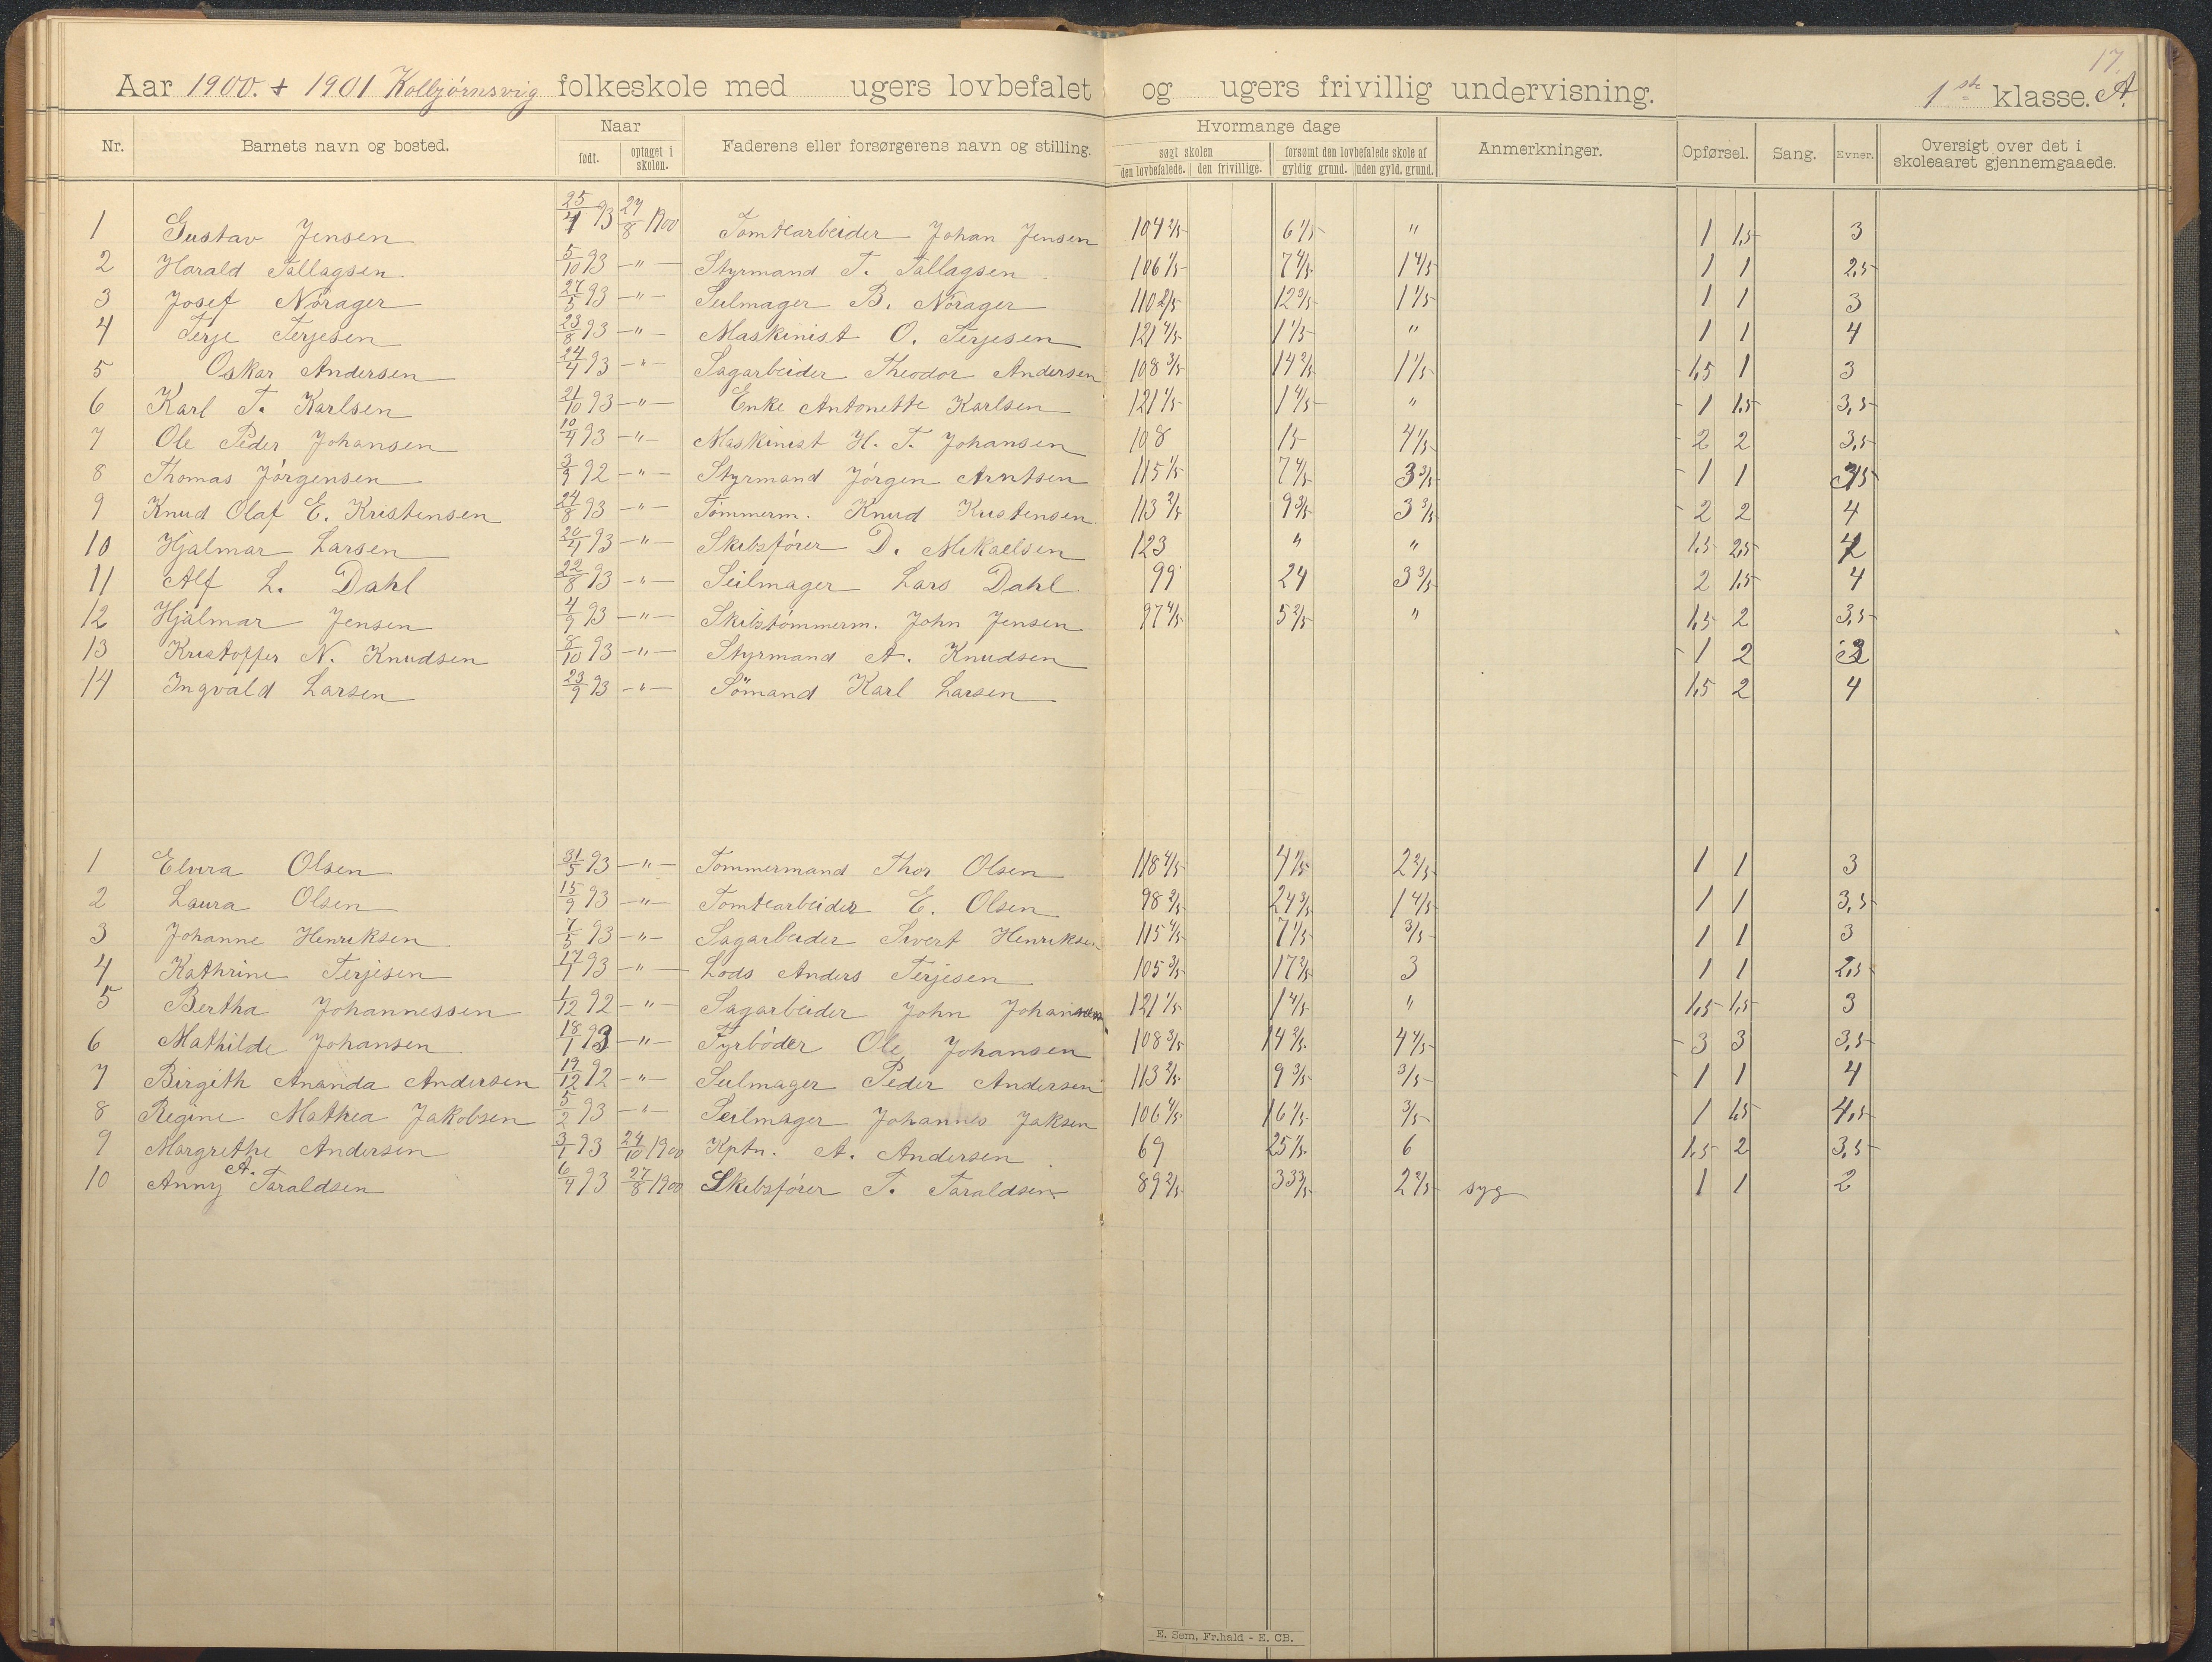 17.
Aar 1900. + 1901 Kolbjørnsvig folkeskole med ugers lovbefalet og ugers frivillig undervisning. 1ste klasse. A.
Nr. Barnets navn og bosted. Naar født. optaget i skolen. Faderens eller forsørgerens navn og stilling. Hvormange dage søgt skolen den lovbefalede. den frivillige. forsømt den lovbefalede skole af gyldig grund. uden gyld. grund. Anmerkninger. Opførsel. Sang. Evner. Oversigt over det i skoleaaret gjennemgaaede.
1 Gustav Jensen 25/4 93 27/8 1900 Tomtearbeider Johan Jensen 104 2/5 6 1/5 " 1 1,5 3
2 Harald Tallagsen 5/10 93 -"- Styrmand T. Tallagsen 106 1/5 7 4/5 1 4/5 1 1 2,5
3 Josef Nørager 27/5 93 -"- Seilmager B. Nørager 110 2/5 12 3/5 1 1/5 1 1 3
4 Terje Terjesen 23/8 93 -"- Maskinist O. Terjesen 121 4/5 1 1/5 " 1 1 4
5 Oskar Andersen 24/4 93 -"- Sagarbeider Theodor Andersen 108 3/5 14 2/5 1 1/5 1,5 1 3
6 Karl T. Karlsen 21/10 93 -"- Enke Antonette Karlsen 121 1/5 1 4/5 " 1 1,5 3,5
7 Ole Peder Johansen 10/4 93 -"- Maskinist H. T. Johansen 108 15 4 1/5 2 2 3,5
8 Thomas Jørgensen 3/9 92 -"- Styrmand Jørgen Arntsen 115 1/5 7 4/5 3 3/5 1 1
9 Knud Olaf E. Kristensen 24/8 93 -"- Tømmerm. Knud Kristensen 113 2/5 9 3/5 3 3/5 2 2 4
10 Hjalmar Larsen 20/4 93 -"- Skibsfører D. Mikaelsen 123 " " 1,5 2,5
11 Alf L. Dahl 22/8 93 -"- Seilmager Lars Dahl 99 24 3 3/5 2 1,5 4
12 Hjalmar Jensen 4/9 93 -"- Skibstømmerm. John Jensen 97 4/5 5 2/5 " 1,5 2 3,5
13 Kristoffer N. Knudsen 8/10 93 -"- Styrmand A. Knudsen 1 2 3
14 Ingvald Larsen 23/9 93 -"- Sømand Karl Larsen 1,5 2 4
1 Elvira Olsen 31/5 93 -"- Tømmermand Thor Olsen 118 4/5 4 1/5 2 2/5 1 1 3
2 Laura Olsen 15/9 93 -"- Tomtearbeider E. Olsen 98 2/5 24 3/5 1 4/5 1 1 3,5
3 Johanne Henriksen 7/5 93 -"- Sagarbeider Sivert Henriksen 115 4/5 7 1/5 3/5 1 1 3
4 Kathrine Terjesen 17/1 93 -"- Lods Anders Terjesen 105 3/5 17 2/5 3 1 1 2,5
5 Bertha Johannessen 1/12 92 -"- Sagarbeider John Johannessen 121 1/5 1 4/5 " 1,5 1,5 3
6 Mathilde Johansen 18/1 93 -"- Fyrbøder Ole Johansen 108 3/5 14 2/5 4 4/5 3 3 3,5
7 Birgith Ananda Andersen 19/12 92 -"- Seilmager Peder Andersen 113 2/5 9 3/5 3/5 1 1 4
8 Regine Mathea Jakobsen 5/2 93 -"- Seilmager Johannes Jaksen 106 4/5 16 1/5 3/5 1 1,5 4,5
9 Margrethe Andersen 3/1 93 24/10 1900 Kptn. A. Andersen 69 25 1/5 6 1,5 2 3,5
10 Anny A. Taraldsen 6/4 93 27/8 1900 Skibsfører T. Taraldsen 89 2/5 33 3/5 2 2/5 syg 1 1 2
E. Sem, Fr.hald - E. CB.